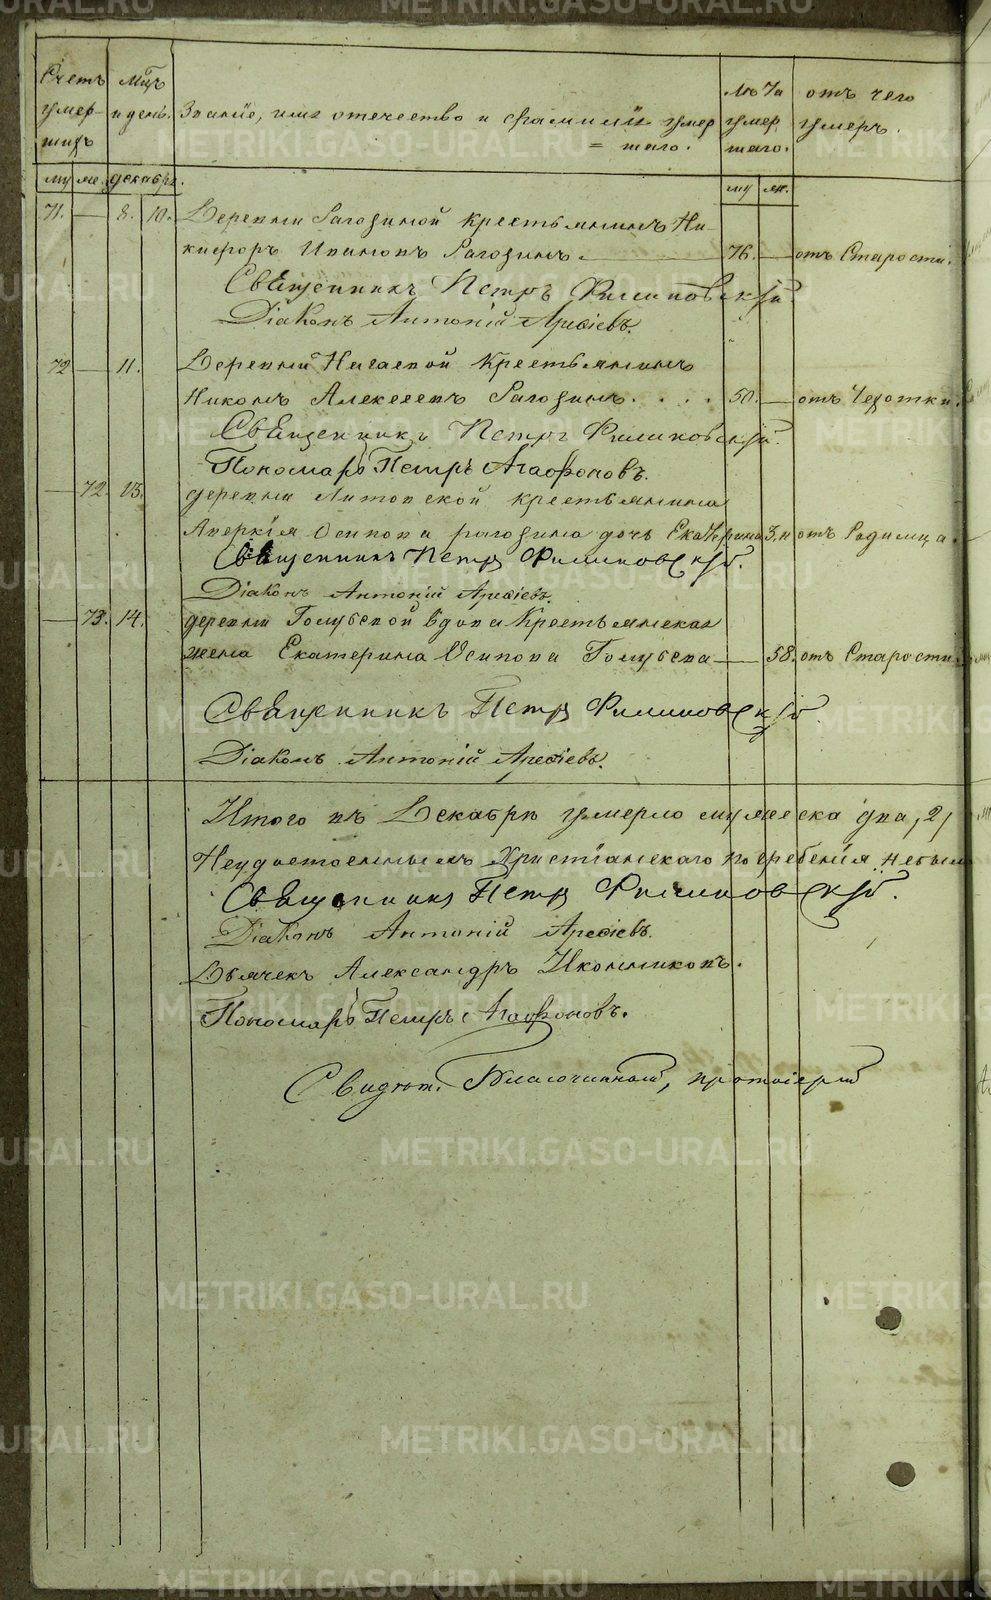 Счетъ умер-шихъ
Мцъ и день.
Званіе, имя отечество и фамилія умер=шаго.
Лѣта умершаго.
отъ чего умеръ.
му же. декабрь. му же.
71. — 8. 10. Деревни Рагозиной крестьянинъ Ни-
кифоръ Ивановъ Рагозинъ. — 76. — отъ Старости.
Священникъ Петръ Филиповскій
Діаконъ Антоній Арефіевъ.
72 — 11. Деревни Нагаевой Крестьянинъ
Никонъ Алексеевъ Рагозинъ. . . . 50. — отъ Чехотки.
Священникъ Петръ Филиповскій.
Пономарь Петръ Агафоновъ.
— 72. 13. деревни Литовской крестьянина
Аверкія Осипова рагозина дочь Екатерина 3. н отъ Родимца.
Священникъ Петръ Филиповскій.
Діаконъ Антоній Арефіевъ.
— 73. 14. деревни Голубевой вдова Крестьянская
жена Екатерина Осипова Голубева — 58. отъ Старости
Священникъ Петръ Филиповскій.
Діаконъ Антоній Арефіевъ.
Итого въ Декабрѣ умерло мужеска два, 2,
Неудостоенныхъ Христіанскаго погребенія небыло
Священникъ Петръ Филиповскій.
Діаконъ Антоній Арефіевъ.
Дьячекъ Александръ Иконниковъ.
Пономарь Петръ Агафоновъ.
Свидѣт. Благочинный, протоіерей
METRIKI.GASO-URAL.RU